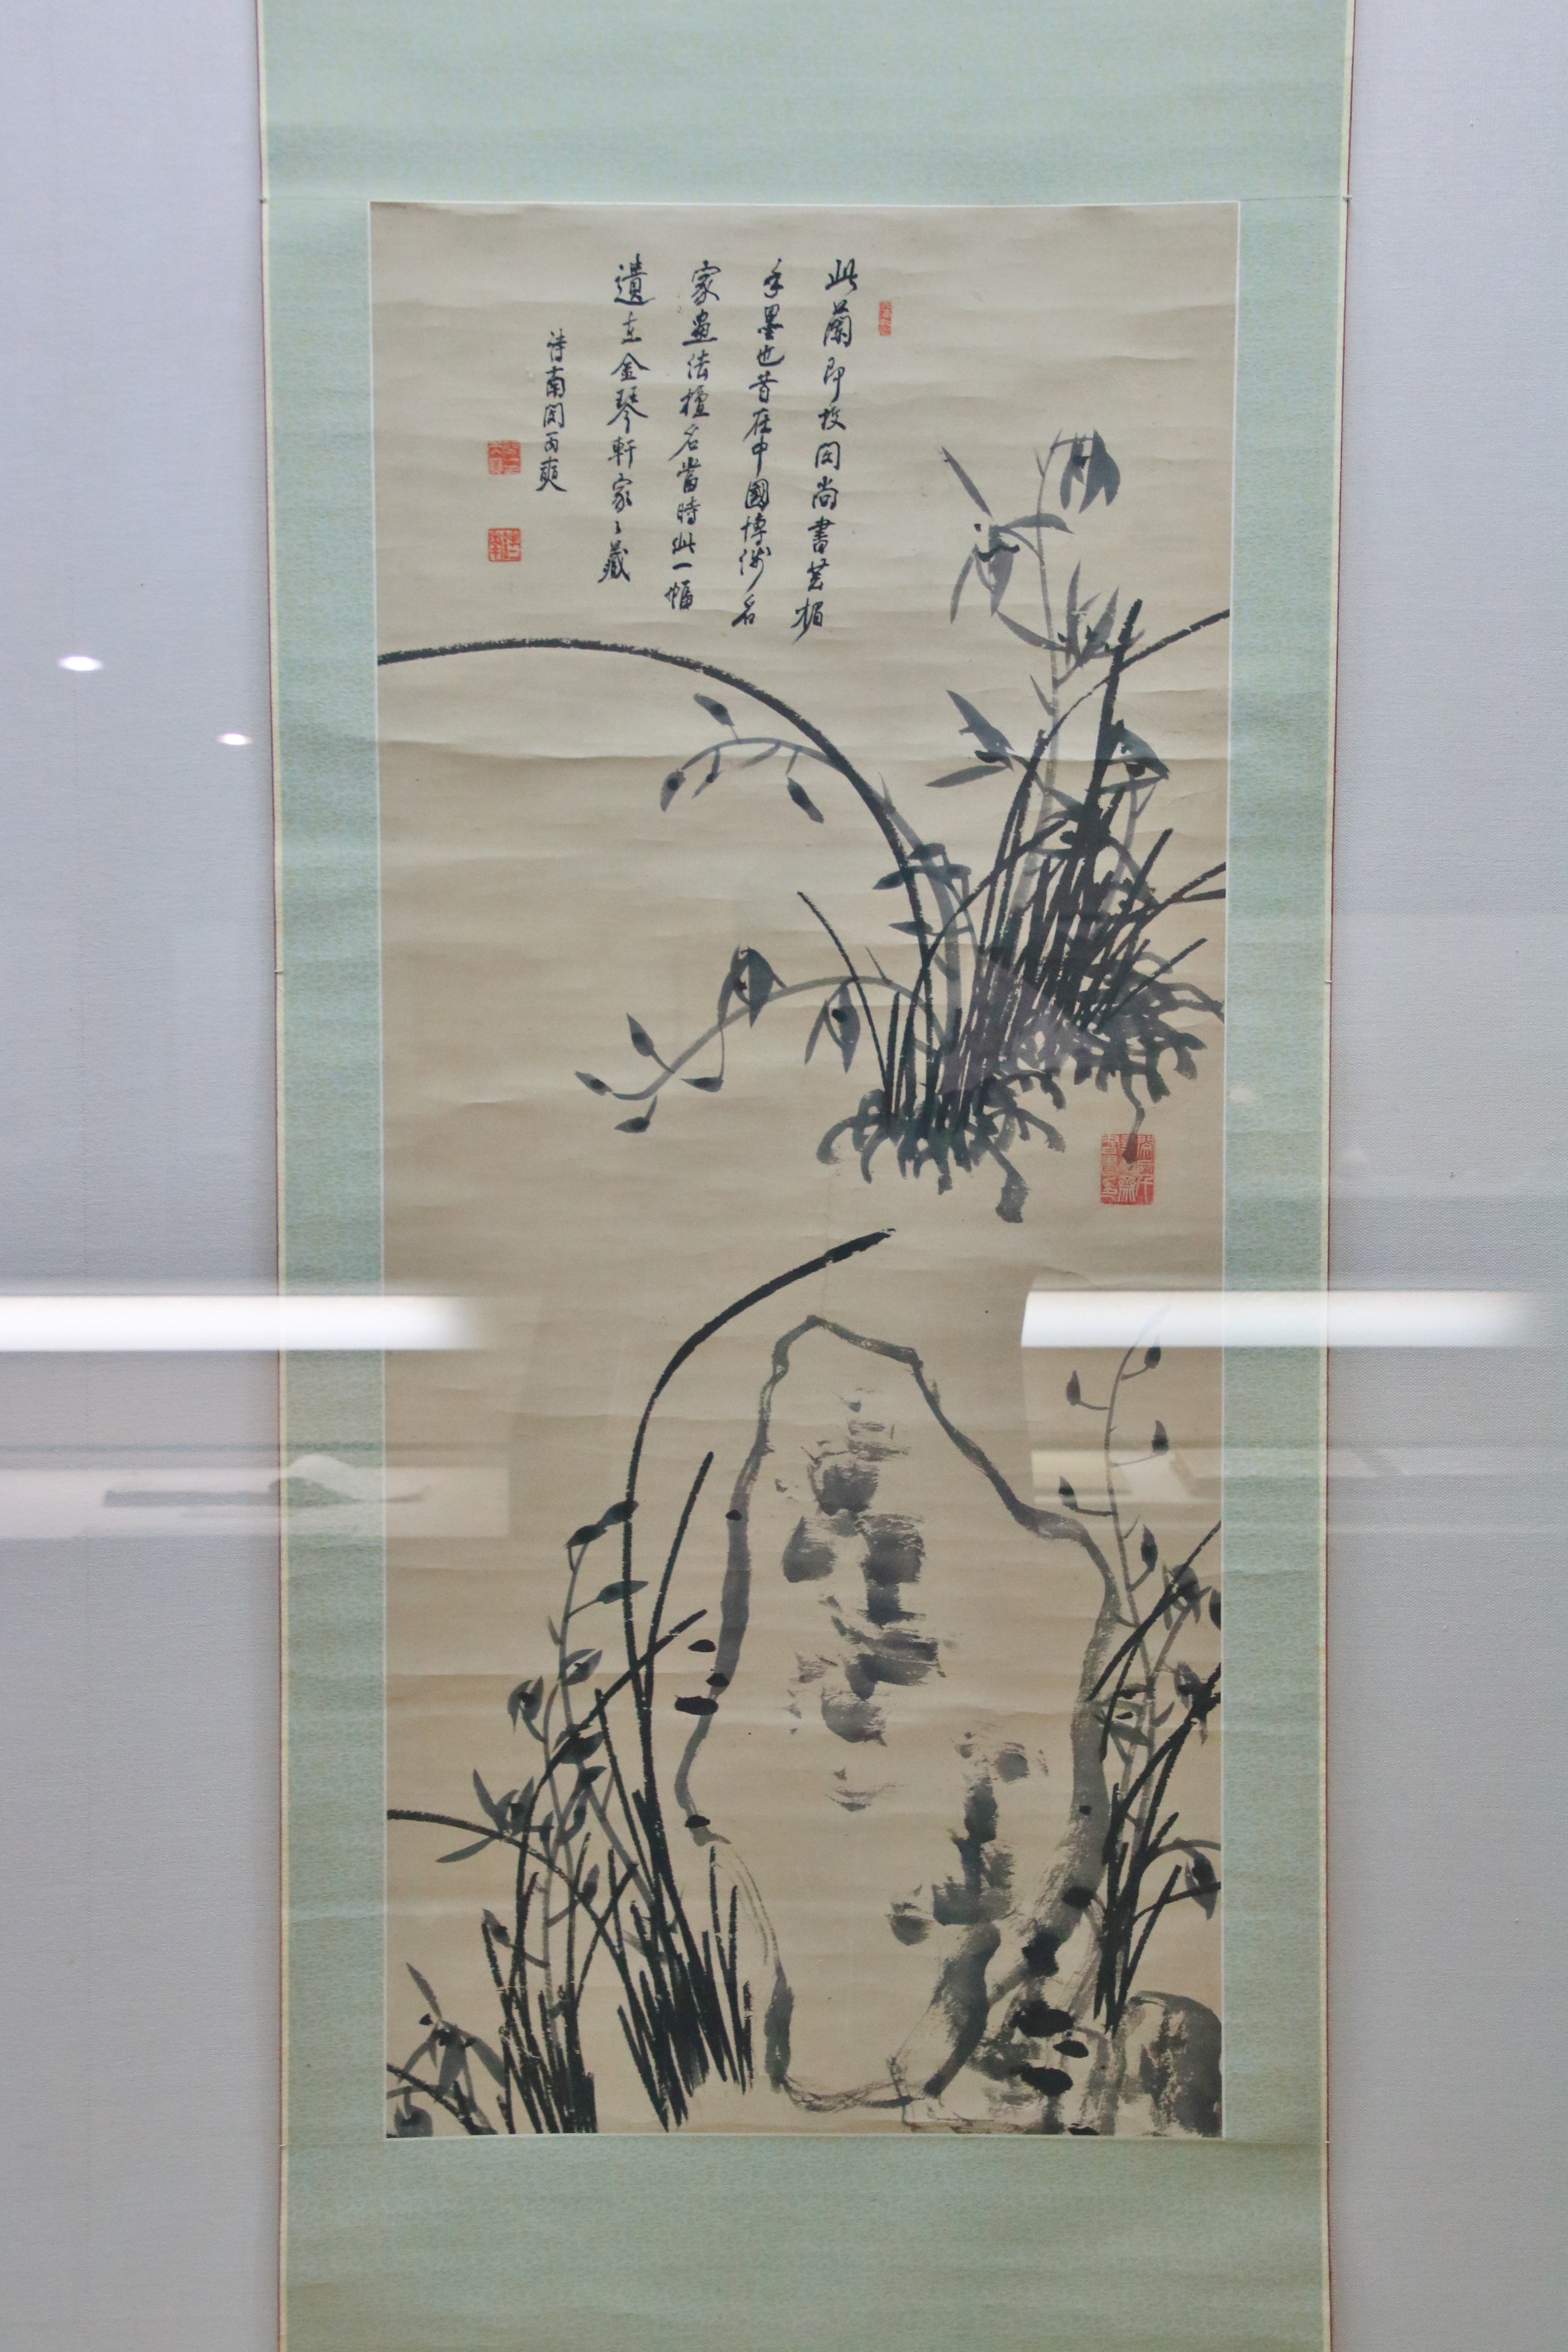 此蘭即故閔尚書芸楣
手墨也昔在中國博得名
家畫法擅名當時此一幅
遺在金琴軒家〻藏
詩南閔丙奭